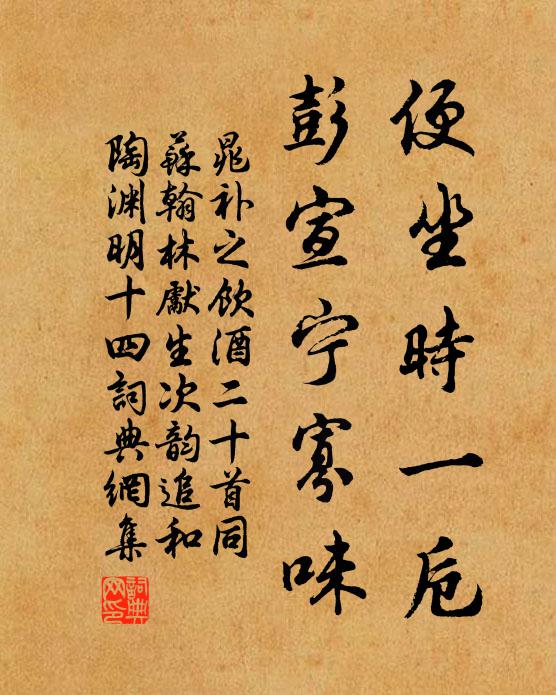 便坐時一卮
彭宣宁寡味
晁补之飲酒二十首同
蘇翰林獻生次韵追和
陶渊明十四詞典網集
詞典网印